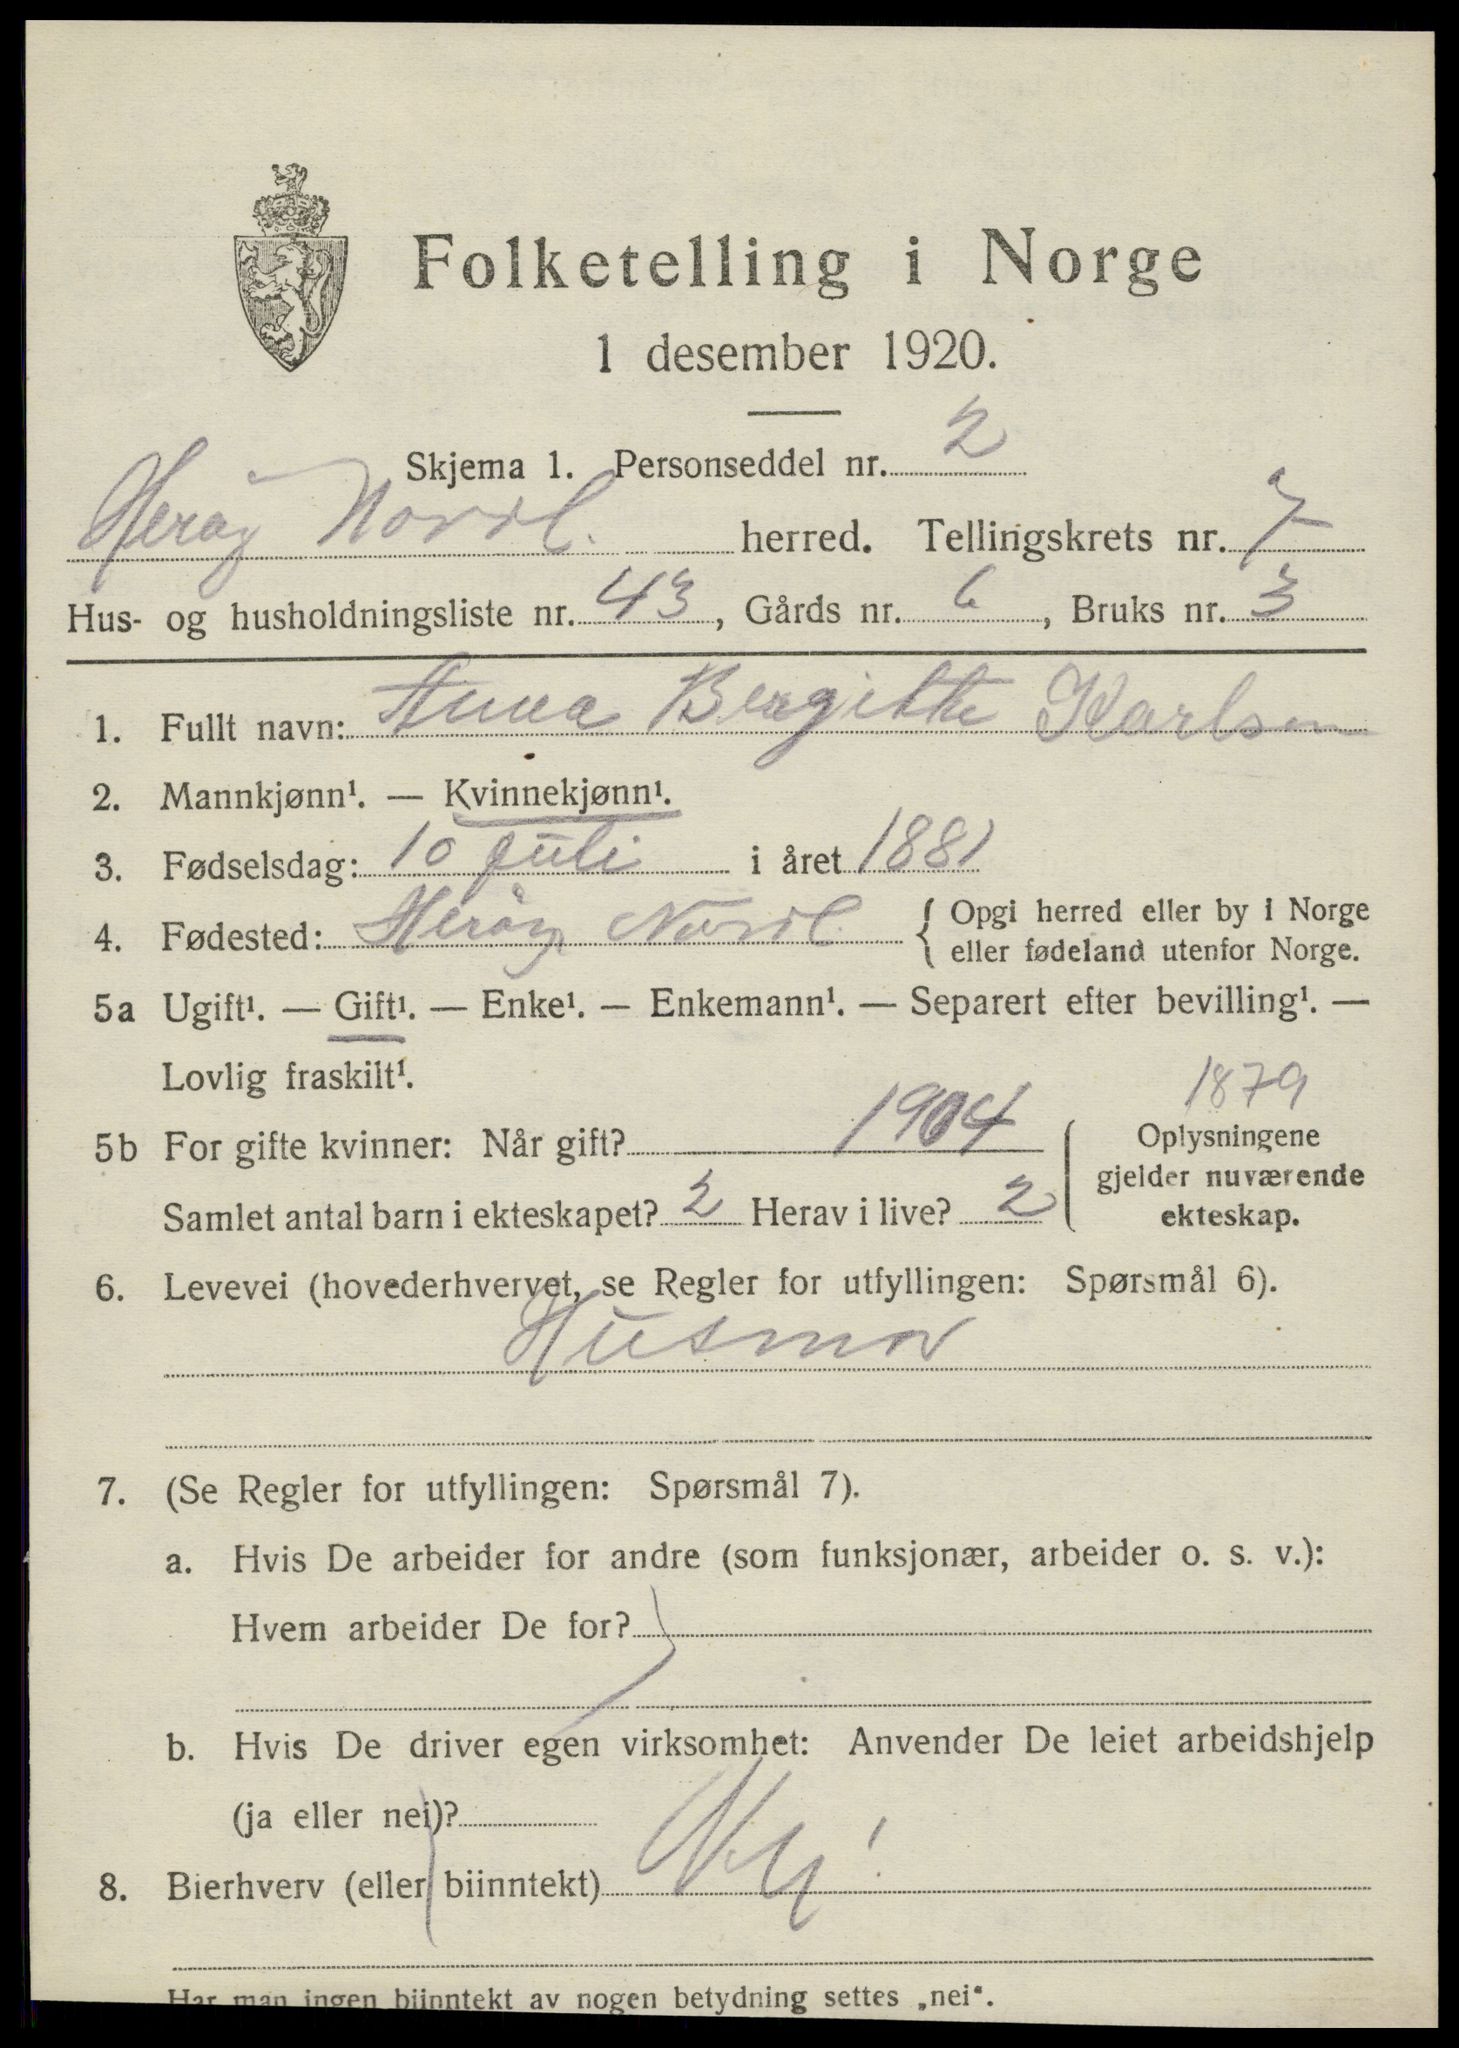 Folketelling i Norge
1 desember 1920.
Skjema 1. Personseddel nr. 2
Herøy Nordl. herred. Tellingskrets nr. 7
Hus- og husholdningsliste nr. 43, Gårds nr. 6, Bruks nr. 3
1. Fullt navn: Anna Bergitte Karlsen
2. Mannkjønn¹. — Kvinnekjønn¹.
3. Fødselsdag: 10 juli i året 1881
4. Fødested: Herøy Nordl. { Opgi herred eller by i Norge
eller fødeland utenfor Norge.
5a Ugift¹. — Gift¹. — Enke¹. — Enkemann¹. — Separert efter bevilling¹. —
Lovlig fraskilt¹.
1879
5b For gifte kvinner: Når gift? 1904 { Oplysningene
gjelder nuværende
Samlet antal barn i ekteskapet? 2 Herav i live? 2 ekteskap.
6. Levevei (hovederhvervet, se Regler for utfyllingen: Spørsmål 6).
Husmor
7. (Se Regler for utfyllingen: Spørsmål 7).
a. Hvis De arbeider for andre (som funksjonær, arbeider o. s. v.):
Hvem arbeider De for?
b. Hvis De driver egen virksomhet: Anvender De leiet arbeidshjelp
(ja eller nei)?
8. Bierhverv (eller biinntekt)
Har man ingen biinntekt av nogen betydning settes „nei“.